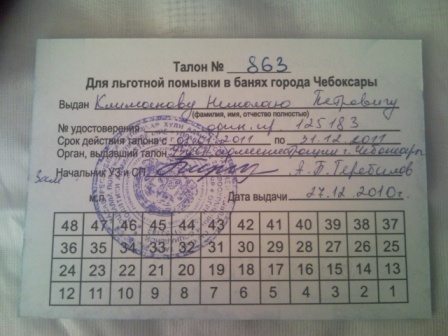 Талон № 863
Для льготной помывки в банях города Чебоксары
Выдан Климанову Николаю Петровичу
(фамилия, имя, отчество полностью)
№ удостоверения 125183
Срок действия талона с 01.01.2011 31.12.2011
Орган, выдавший талон администрации г. Чебоксары
Зам. Начальник УЗ и СП
м.п. Дата выдачи 27.12.2010г.
48 47 46 45 44 43 42 41 40 39 38 37
36 35 34 33 32 31 30 29 28 27 26 25
24 23 22 21 20 19 18 17 16 15 14 13
12 11 10 9 8 7 6 5 4 3 2 1